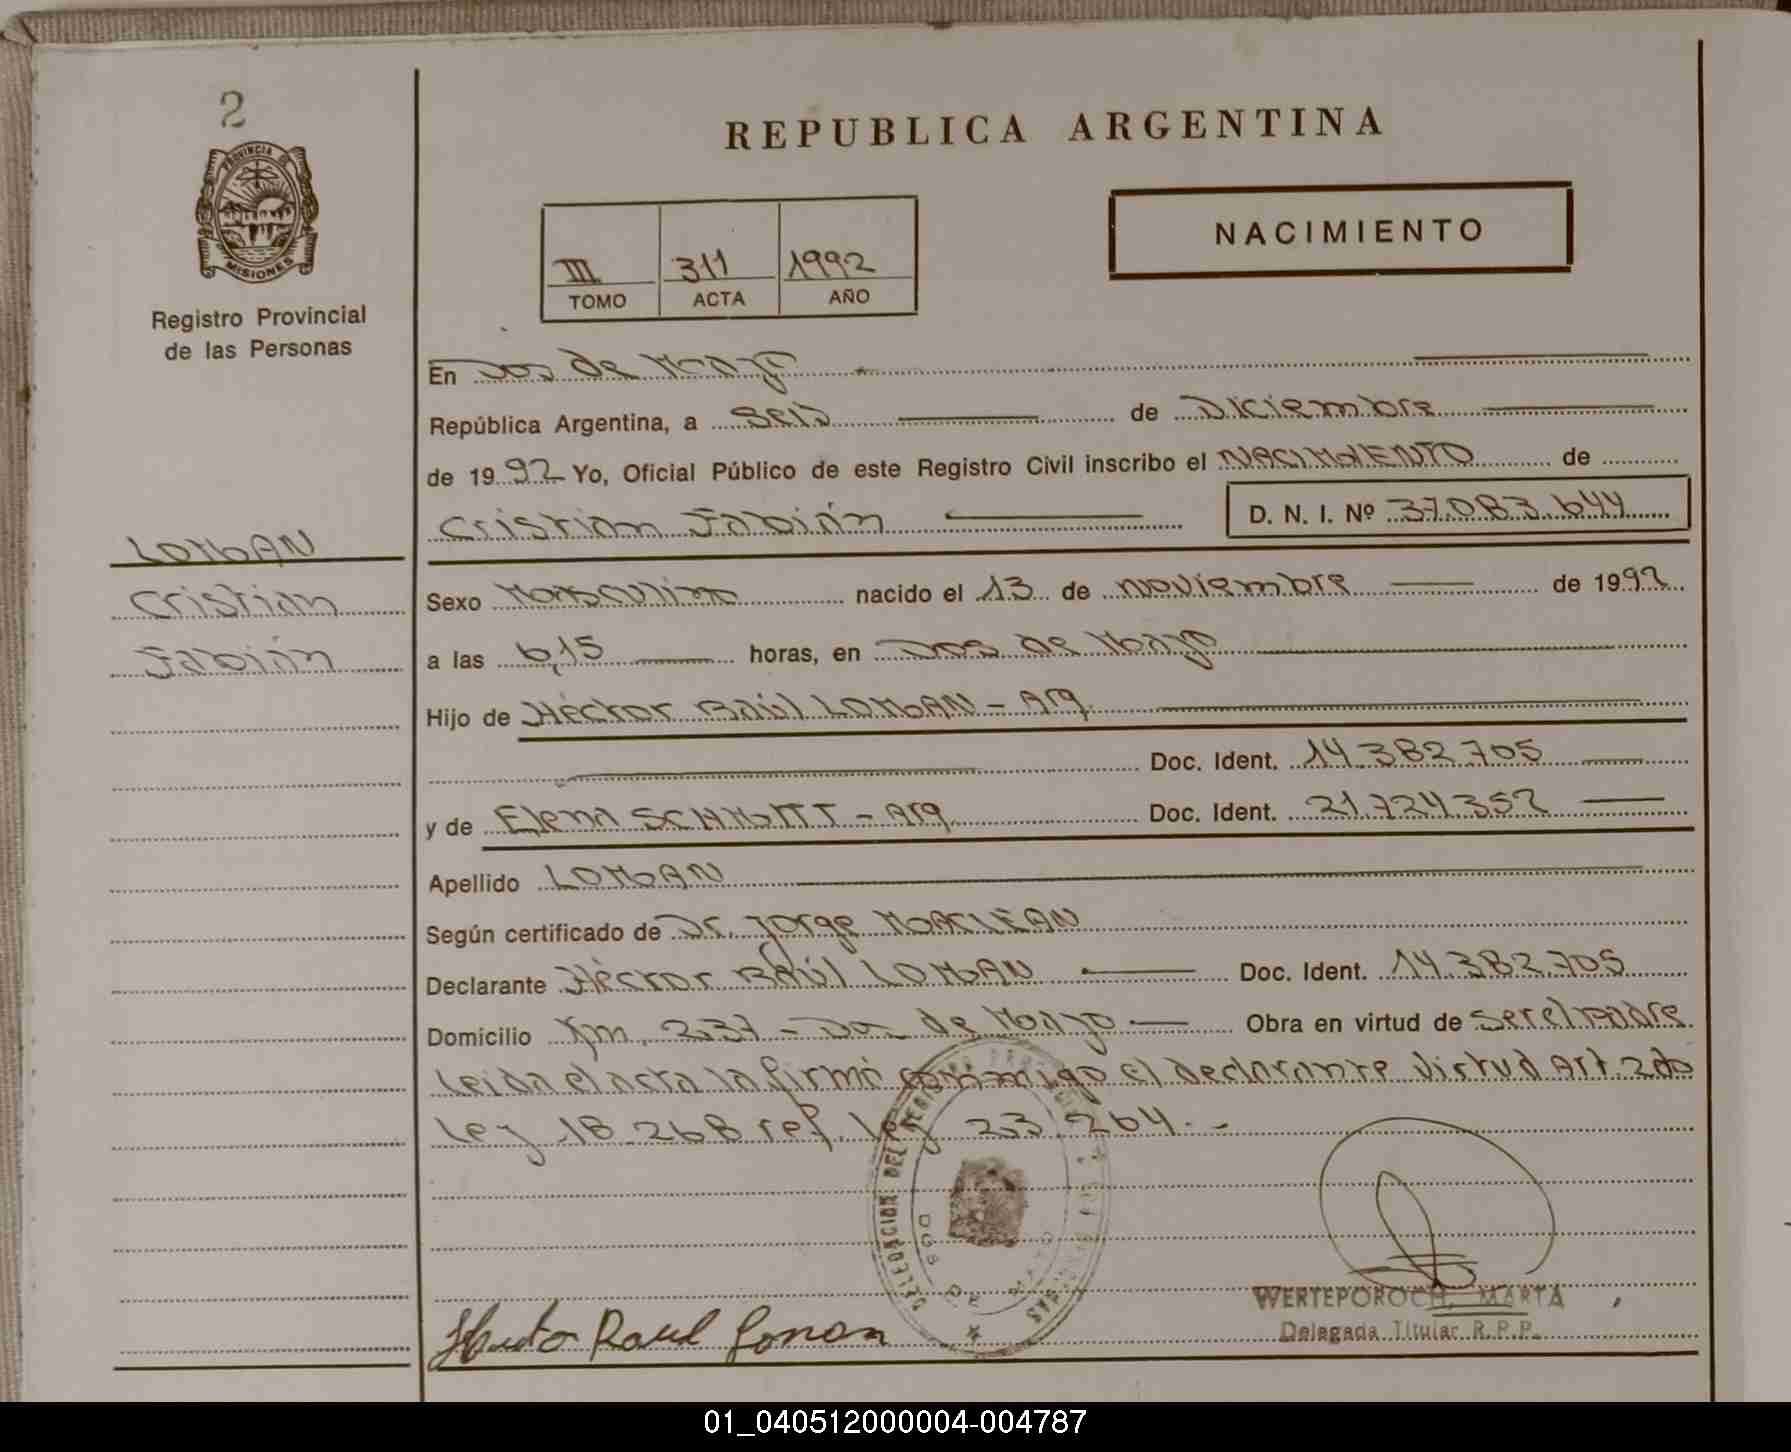 2
PROVINCIA DE
MISIONES
Registro Provincial
de las Personas
REPUBLICA ARGENTINA
NACIMIENTO
III 311 1992
TOMO ACTA AÑO
En Dos de Mayo
República Argentina, a Seis de Diciembre
de 1992 Yo, Oficial Público de este Registro Civil inscribo el NACIMIENTO de
Cristian Fabián D. N. I. Nº 37.083.644
LOMAN
Cristian
Fabián
Sexo Masculino nacido el 13 de noviembre de 1992
a las 6,15 horas, en Dos de Mayo
Hijo de Héctor Raúl LOMAN - Arg
Doc. Ident. 14.382.705
y de Elena SCHMITT - Arg Doc. Ident. 21.724.352
Apellido LOMAN
Según certificado de Dr. Jorge MACLEAN
Declarante Héctor Raúl LOMAN Doc. Ident. 14.382.705
Domicilio Km. 237 - Dos de Mayo Obra en virtud de ser el padre
Leida el acta la firmó conmigo el declarante virtud Art. 2do
Ley 18.268 ref. ley 23.264.-
DELEGACION DEL REGISTRO PROVINCIAL DE LAS PERSONAS
DOS DE MAYO
WERTEPOROCH, MARTA
Delegada Titular R.P.P.
Raul
01_040512000004-004787